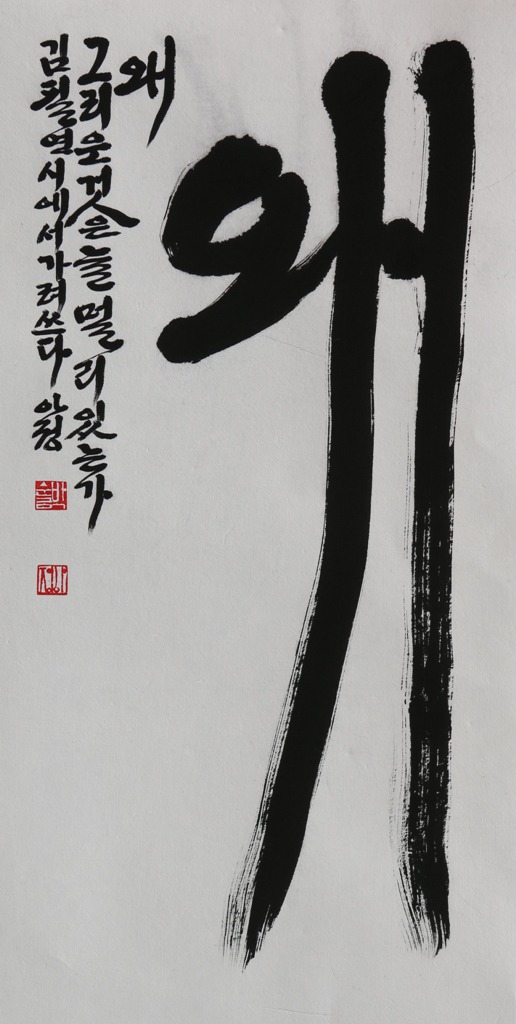 왜
왜
그리운 것은 늘 멀리 있는가
김철연 시에서 가려쓰다